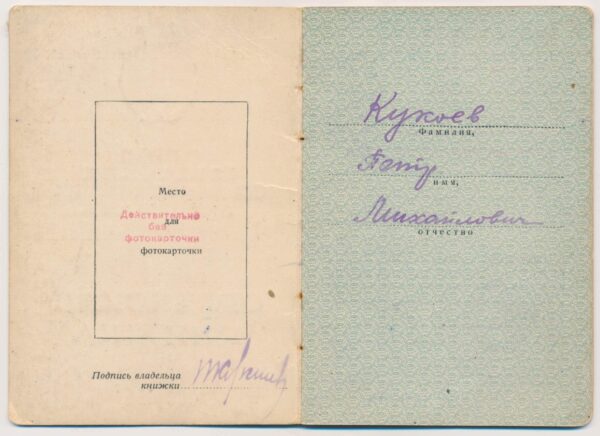 Место
для
фотокарточки
Действительно
без
фотокарточки
Подпись владельца
книжки
Кукоев
Фамилия,
Петр
имя,
Михайлович
отчество